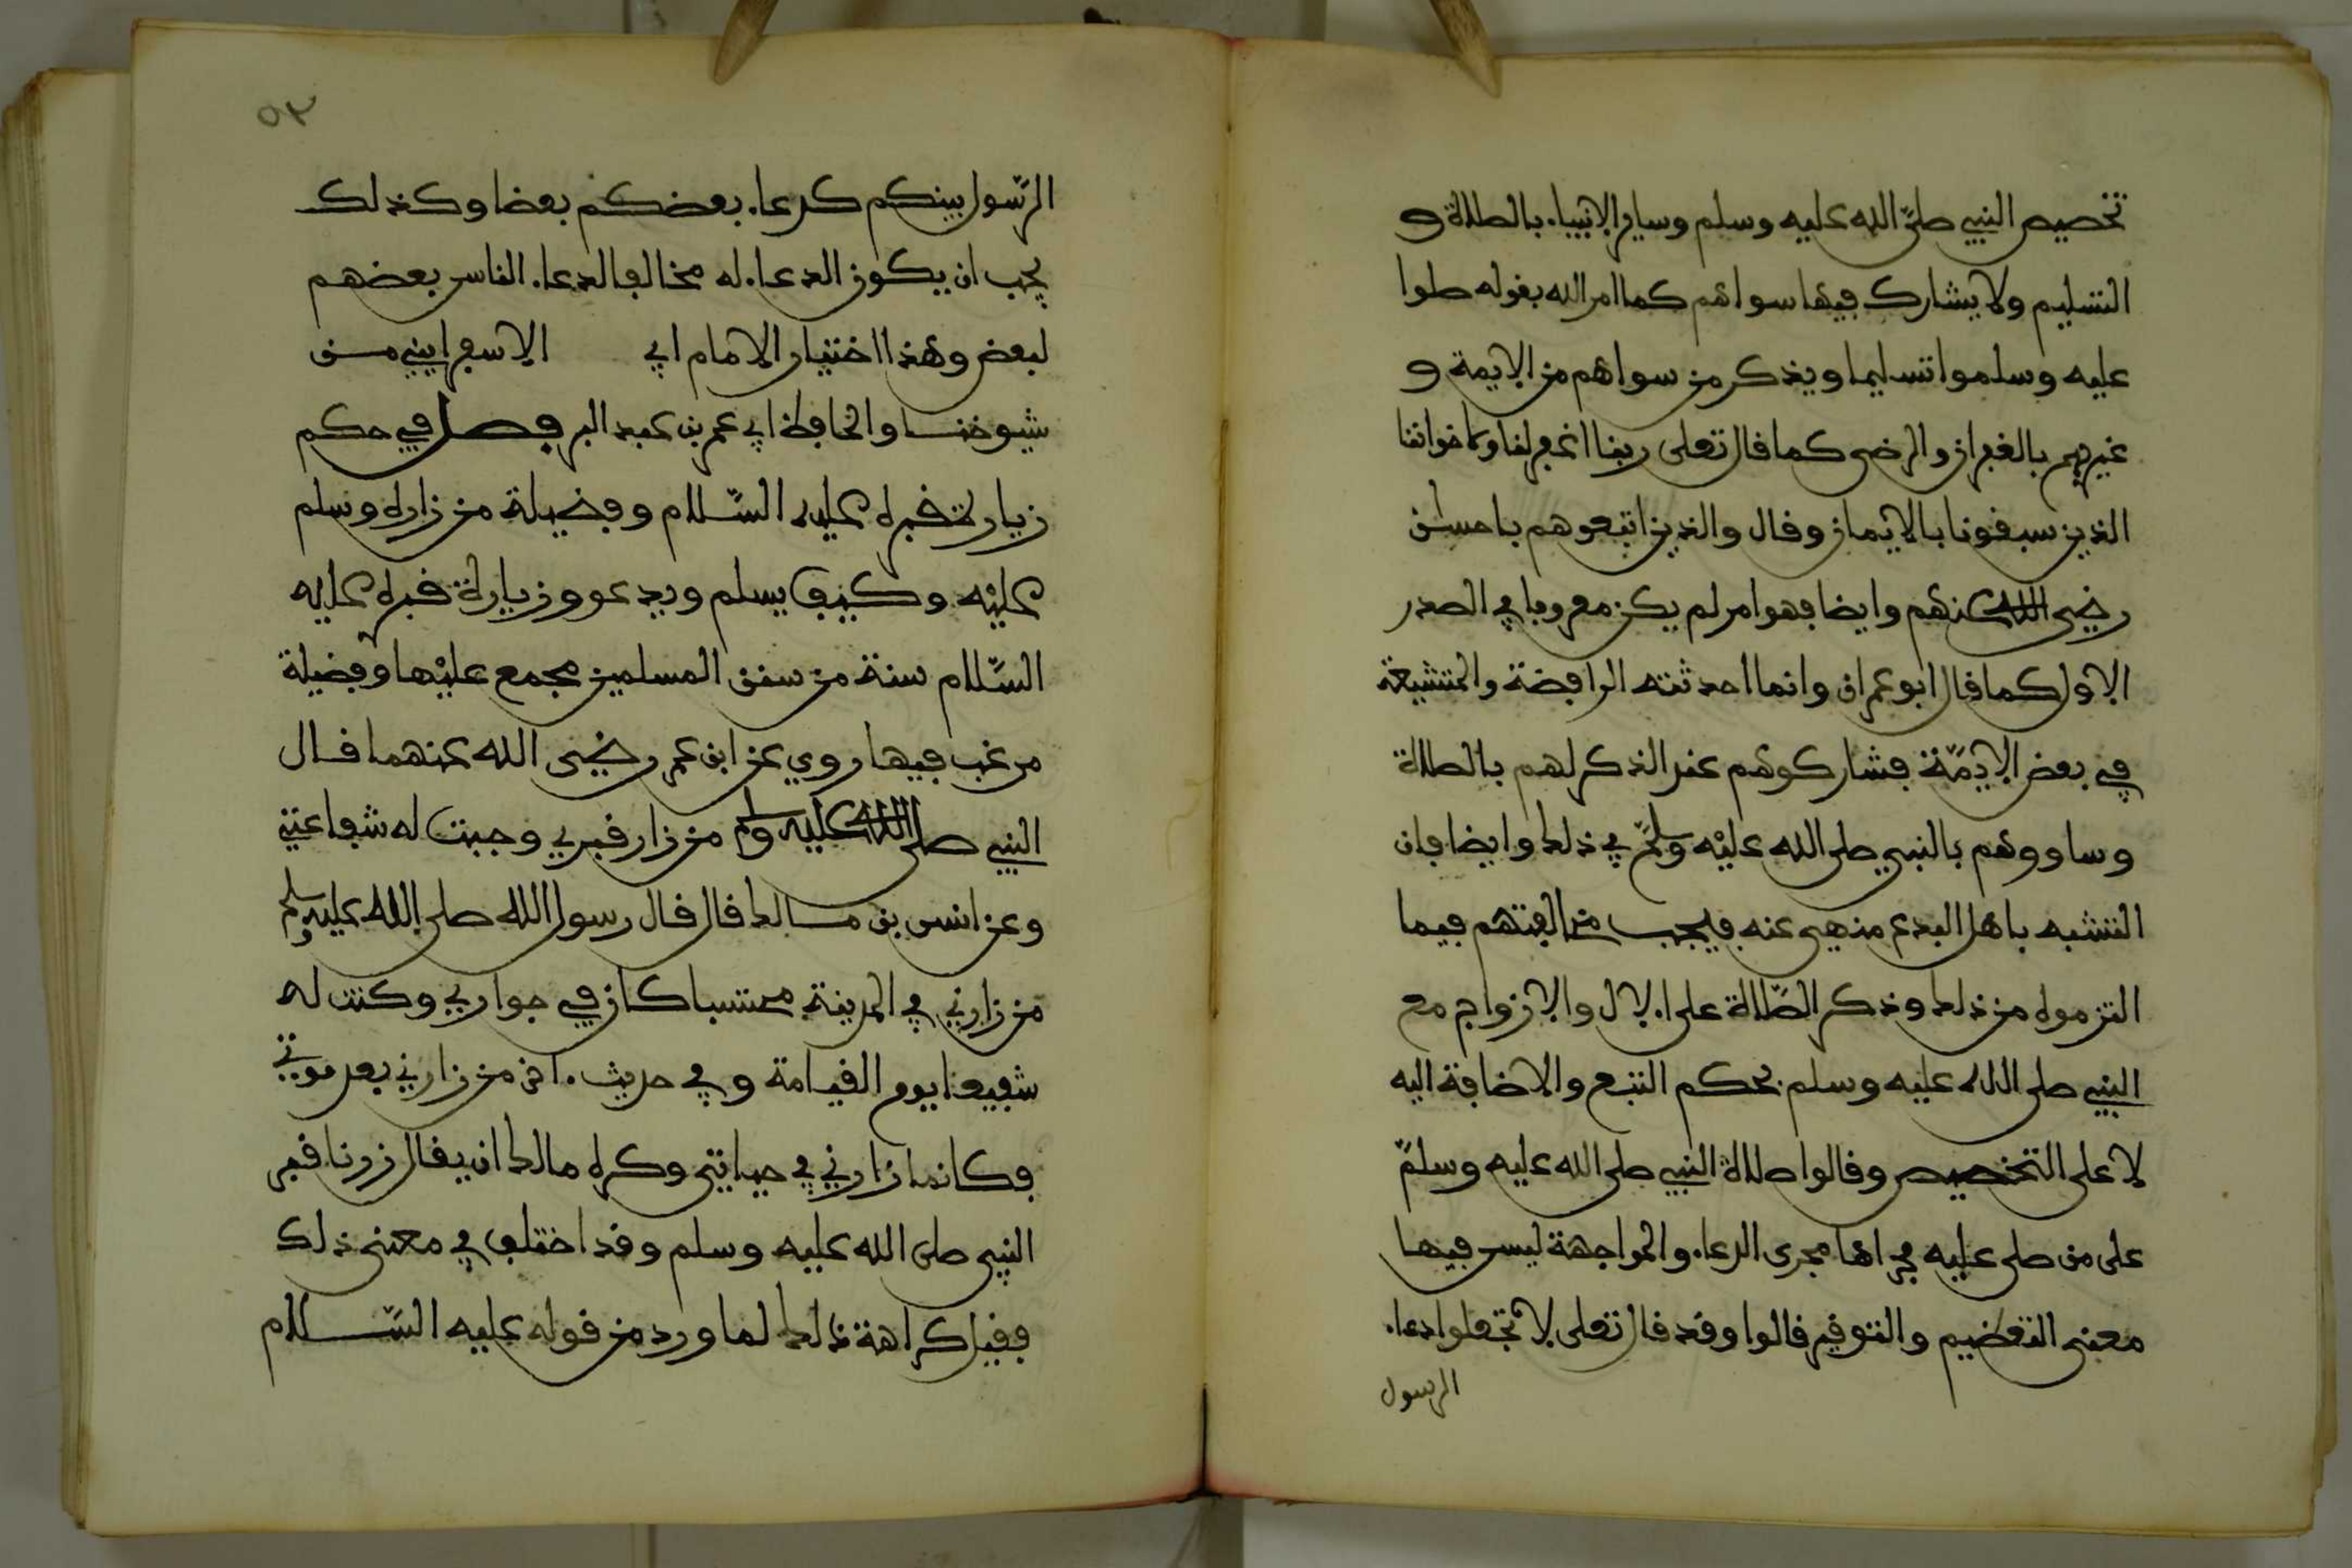 تخصيص النبي صلى الله عليه وسلم وساير الانبياء بالصلاة و
التسليم ولا يشارك فيها سواهم كما امر الله بقوله صلوا
عليه وسلموا تسليما ويذكر من سواهم من الايمة و
غيرهم بالغفران والرضى كما قال تعلى ربنا اغفر لنا ولاخواننا
الذين سبقونا بالايمان وقال والذين اتبعوهم باحسن
رضي الله عنهم وايضا فهو امر لم يكن معروفا في الصدر
الاول كما قال ابو عمران وانما احدثته الرافضة والمتشيعة
في بعض الايمّة فشاركوهم عند الذكر لهم بالصلاة
وساووهم بالنبي صلى الله عليه وسلم في ذلك وايضا فان
التشبه باهل البدع منهي عنه فيجب مخالفتهم فيما
التزموه من ذلك وذكر الصّلاة على الال والازواج مع
النبي صلى الله عليه وسلم بحكم التبع والاضافة اليه
لا على التخصيص وقالوا صلاة النبي صلى الله عليه وسلم
على من صلى عليه مجراها مجرى الدعاء والمواجهة ليس فيها
معنى التعظيم والتوقير قالوا وقد قال تعلى لا تجعلوا دعاء
الرسول
٥٣
الرّسول بينكم كدعاء بعضكم بعضا وكذلك
يجب ان يكون الدعاء له مخالفا لدعاء الناس بعضهم
لبعض وهذا اختيار الامام ابي الاسفرايني من
شيوخنا والحافظ ابي عمر بن عبد البر فصل في حكم
زيارة قبره عليه السّلام وفضيلة من زاره وسلم
عليه وكيف يسلم ويدعو وزيارة قبره عليه
السّلام سنة من سنن المسلمين مجمع عليها وفضيلة
مرغب فيها روي عن ابن عمر رضي الله عنهما قال
النبي صلى الله عليه وسلم من زار قبري وجبت له شفاعتي
وعن انس بن مالك قال قال رسول الله صلى الله عليه وسلم
من زارني في المدينة محتسبا كان في جواري وكنت له
شفيعا يوم القيامة وفي حديث اخر من زارني بعد موتي
فكانما زارني في حياتي وكره مالك ان يقال زرنا قبر
النبي صلى الله عليه وسلم وقد اختلف في معنى ذلك
فقيل كراهة ذلك لما ورد من قوله عليه السّلام